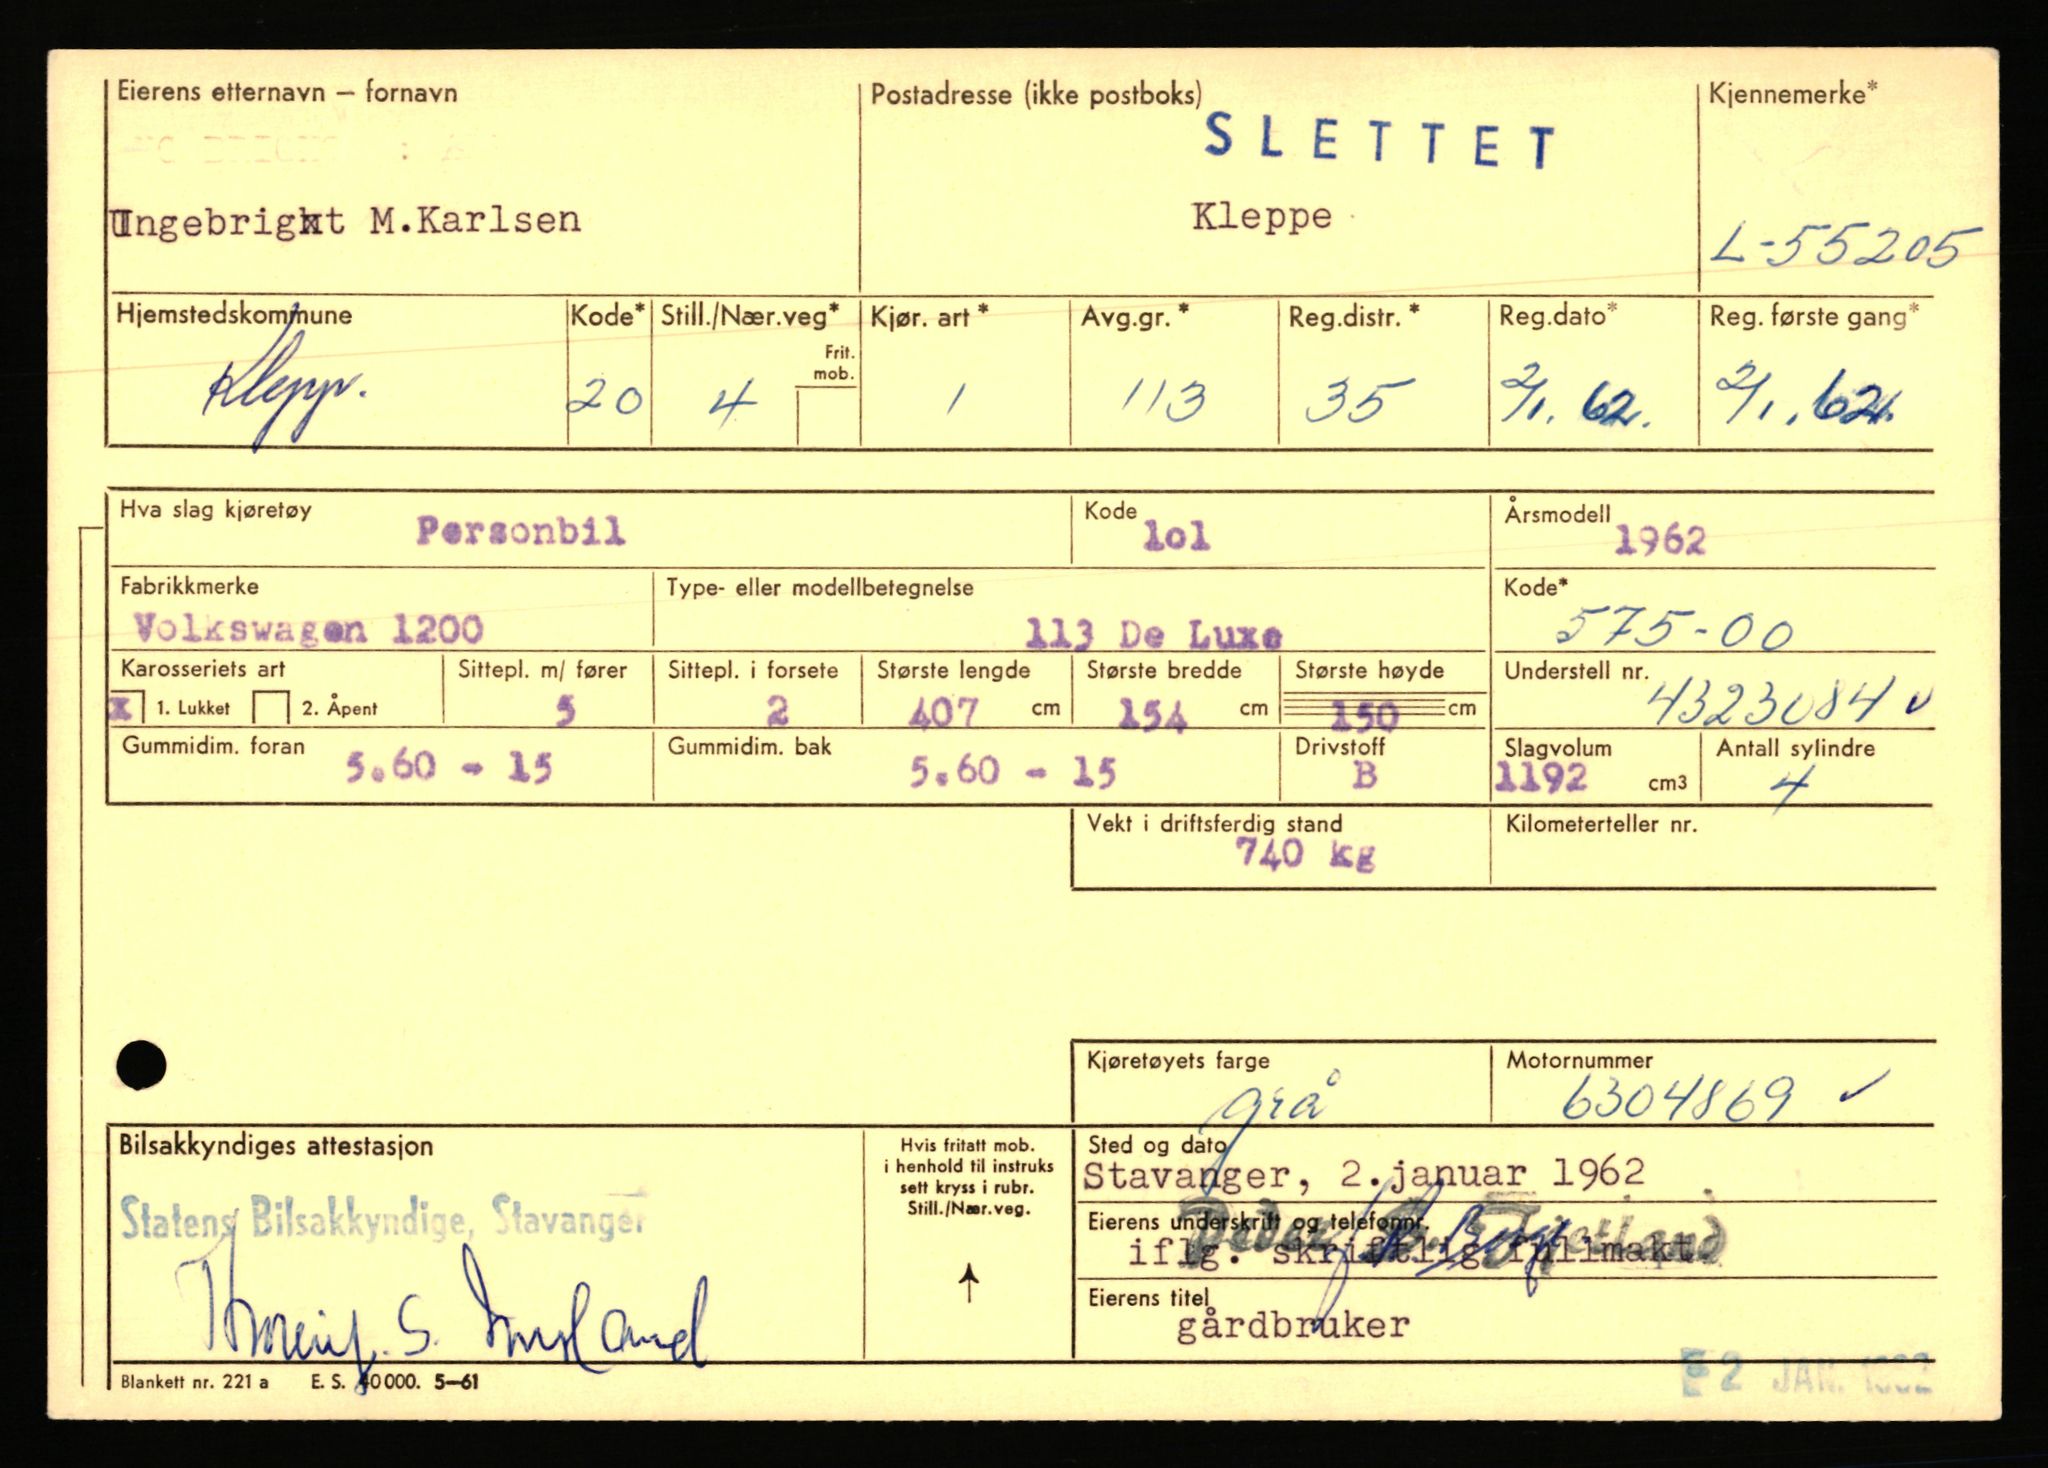 Eierens etternavn – fornavn
Postadresse (ikke postboks)
Kjennemerke*
SLETTET
Ingebrigt M.Karlsen
Kleppe
L-55205
Hjemstedskommune
Kode*
Still./Nær.veg*
Kjør. art*
Avg.gr.*
Reg.distr.*
Reg.dato*
Reg. første gang*
Frit. mob.
Klepp.
20
4
1
113
35
2/1. 62.
2/1. 62.
Hva slag kjøretøy
Personbil
Kode
lol
Årsmodell
1962
Fabrikkmerke
Volkswagen 1200
Type- eller modellbetegnelse
113 De Luxe
Kode*
575-00
Karosseriets art
Sittepl. m/ fører
Sittepl. i forsete
Største lengde
Største bredde
Største høyde
Understell nr.
x 1. Lukket
2. Åpent
5
2
407 cm
154 cm
150 cm
4323084 ✓
Gummidim. foran
5.60 - 15
Gummidim. bak
5.60 - 15
Drivstoff
B
Slagvolum
1192 cm3
Antall sylindre
4
Vekt i driftsferdig stand
740 kg
Kilometerteller nr.
Kjøretøyets farge
grå
Motornummer
6304869 ✓
Bilsakkyndiges attestasjon
Statens Bilsakkyndige, Stavanger
Hvis fritatt mob.
i henhold til instruks
sett kryss i rubr.
Still./Nær.veg.
↑
Sted og dato
Stavanger, 2.januar 1962
Eierens underskrift og telefonnr.
iflg. skriftlig fullmakt.
Eierens titel
gårdbruker
Blankett nr. 221 a E. S. 40000. 5–61
2 JAN.